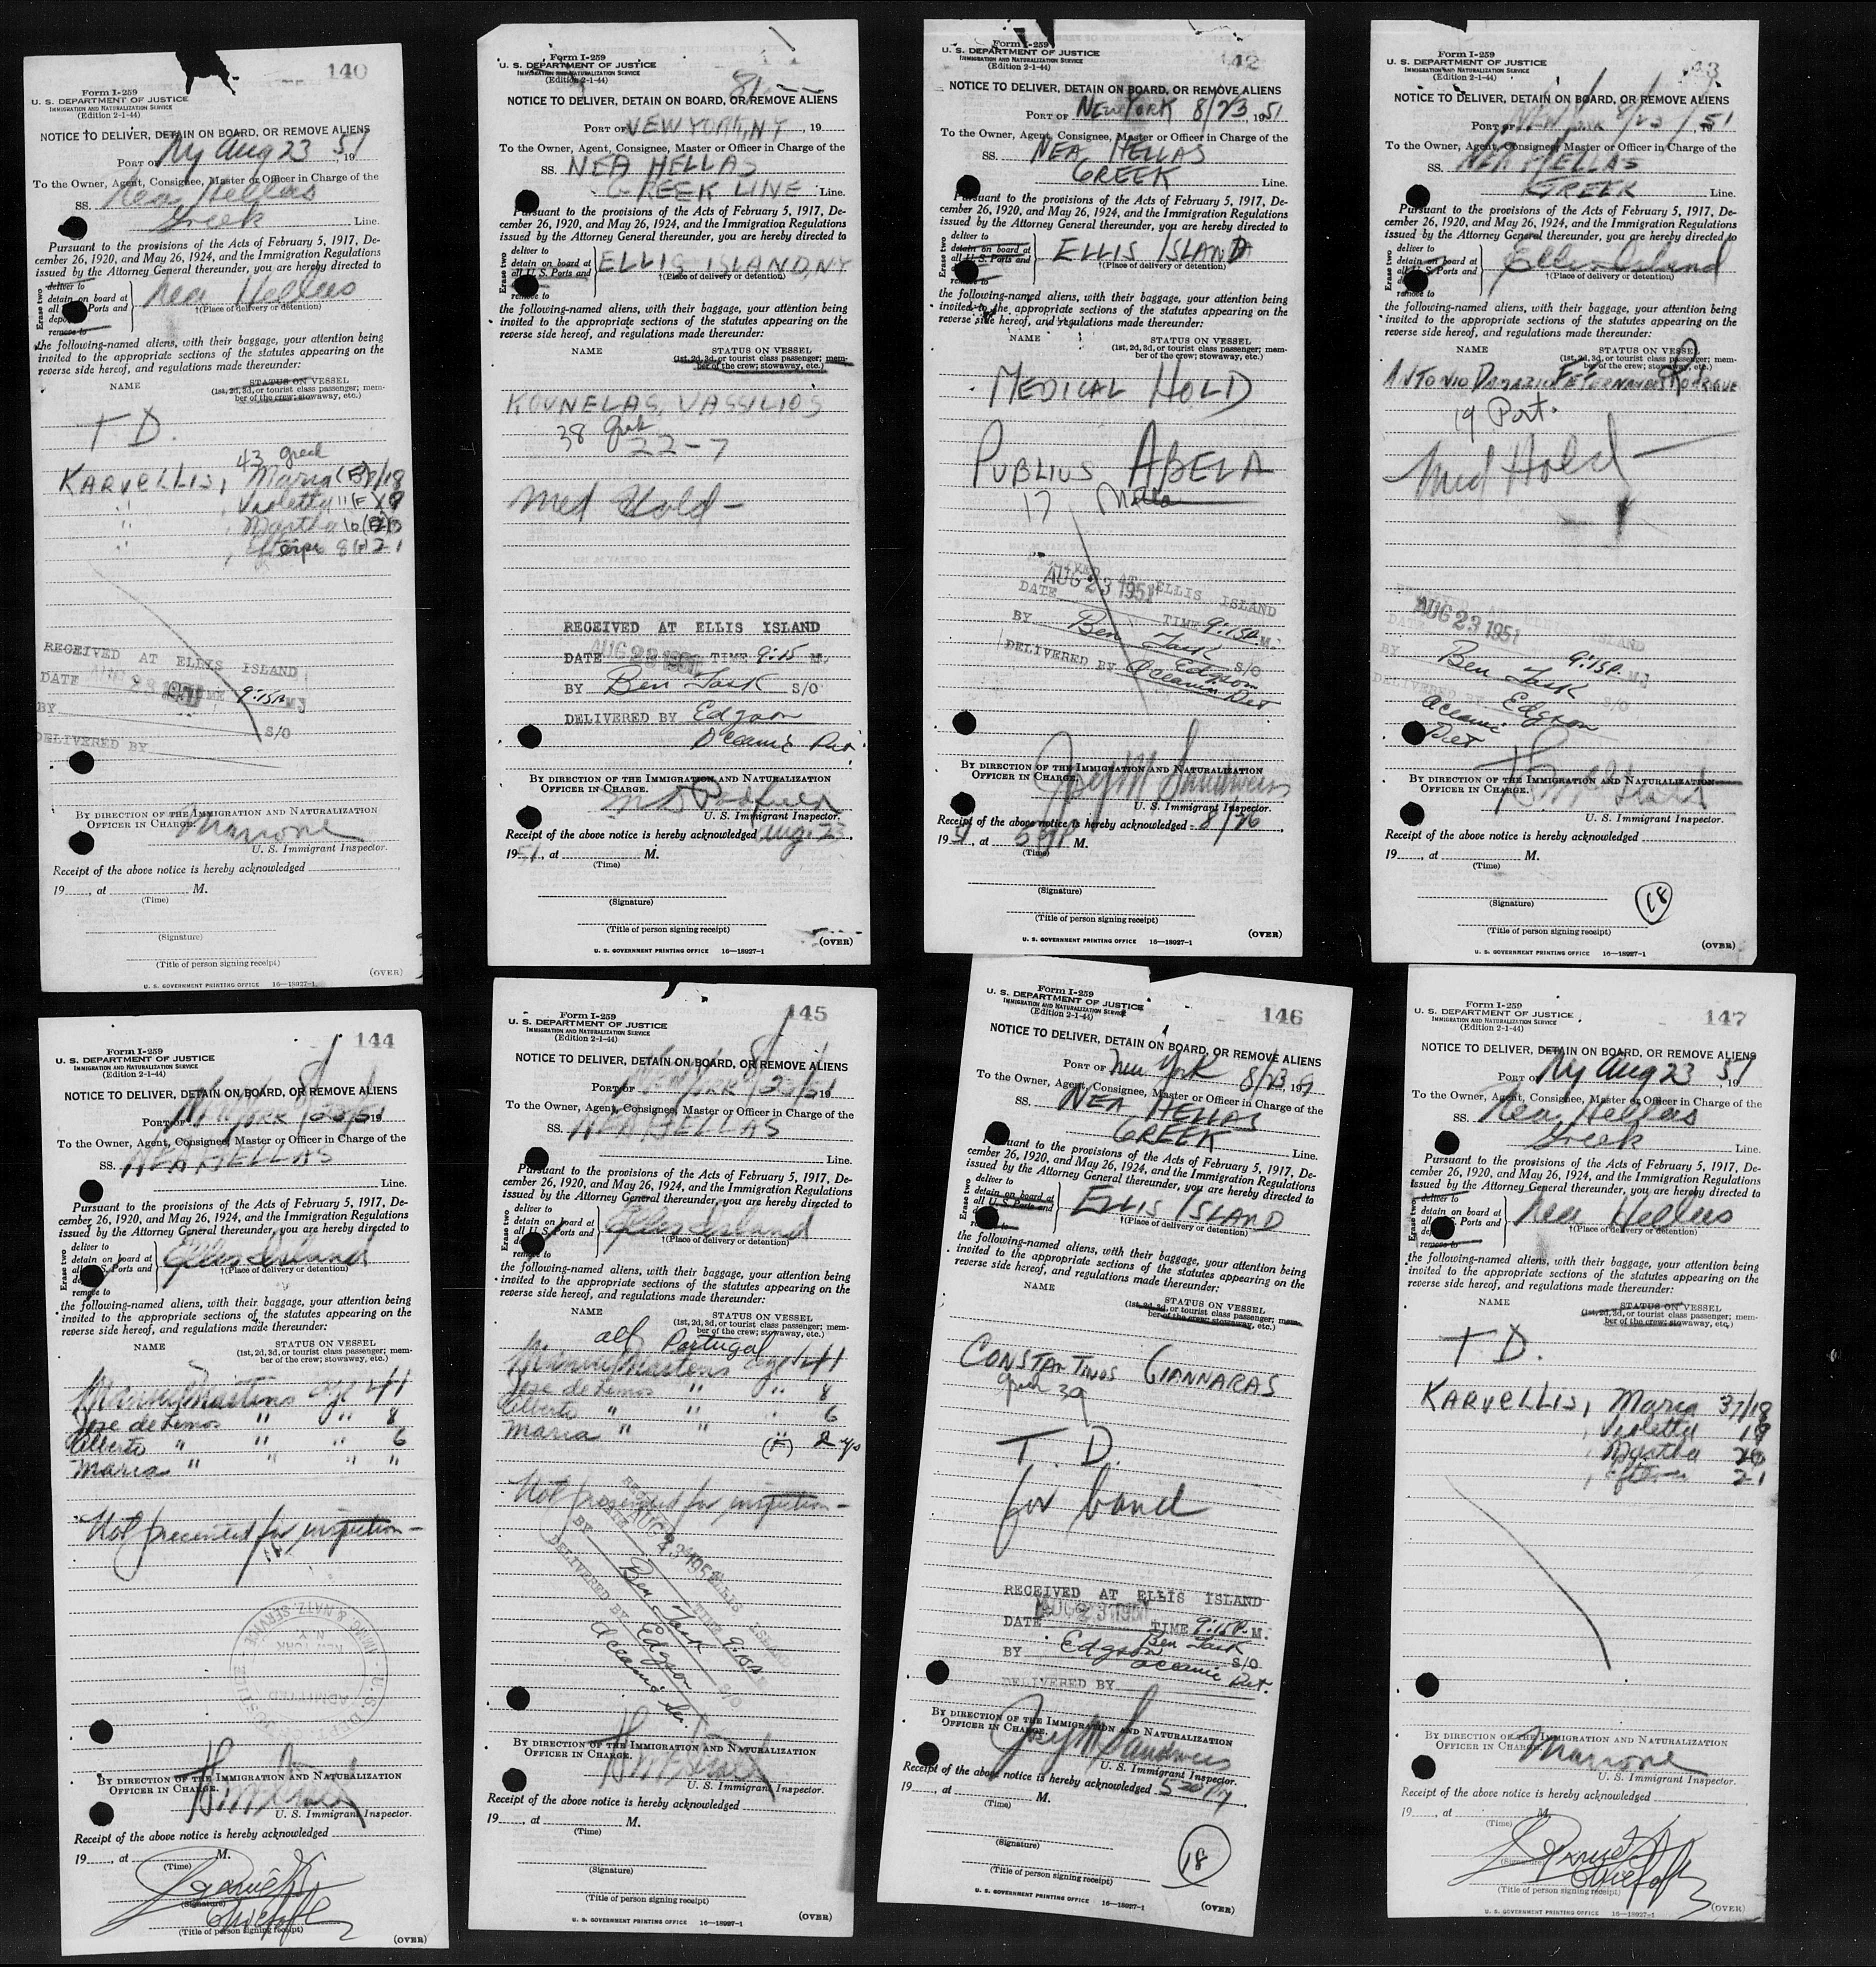 140
Form I-259
U. S. DEPARTMENT OF JUSTICE
IMMIGRATION AND NATURALIZATION SERVICE
(Edition 2-1-44)
NOTICE TO DELIVER, DETAIN ON BOARD, OR REMOVE ALIENS
PORT OF NY Aug 23 1951
To the Owner, Agent, Consignee, Master or Officer in Charge of the
SS. Nea Hellas
Greek Line.
Pursuant to the provisions of the Acts of February 5, 1917, De-
cember 26, 1920, and May 26, 1924, and the Immigration Regulations
issued by the Attorney General thereunder, you are hereby directed to
Erase two
deliver to
detain on board at
all Ports and
remove to
Nea Hellas
†(Place of delivery or detention)
the following-named aliens, with their baggage, your attention being
invited to the appropriate sections of the statutes appearing on the
reverse side hereof, and regulations made thereunder:
NAME STATUS ON VESSEL
(1st, 2d, 3d, or tourist class passenger; mem-
ber of the crew; stowaway, etc.)
T D.
43 greek
KARVELLIS, Maria (F) /18
" , Violetta 11 (F) 19
" , Martha 10 (F)
" , 8 (F) 21
RECEIVED AT ELLIS ISLAND
DATE AUG 23 1951 TIME 9:15P M.
BY S/O
DELIVERED BY
BY DIRECTION OF THE IMMIGRATION AND NATURALIZATION
OFFICER IN CHARGE.
Marrone
U. S. Immigrant Inspector.
Receipt of the above notice is hereby acknowledged
19, at M.
(Time)
(Signature)
(Title of person signing receipt)
(OVER)
U. S. GOVERNMENT PRINTING OFFICE 16—18927-1
Form I-259
U. S. DEPARTMENT OF JUSTICE
IMMIGRATION AND NATURALIZATION SERVICE
(Edition 2-1-44)
NOTICE TO DELIVER, DETAIN ON BOARD, OR REMOVE ALIENS
PORT OF NEW YORK, NY, 19
To the Owner, Agent, Consignee, Master or Officer in Charge of the
SS. NEA HELLAS
GREEK LINE Line.
Pursuant to the provisions of the Acts of February 5, 1917, De-
cember 26, 1920, and May 26, 1924, and the Immigration Regulations
issued by the Attorney General thereunder, you are hereby directed to
Erase two
deliver to
detain on board at
all U. S. Ports and
remove to
ELLIS ISLAND, NY
†(Place of delivery or detention)
the following-named aliens, with their baggage, your attention being
invited to the appropriate sections of the statutes appearing on the
reverse side hereof, and regulations made thereunder:
NAME STATUS ON VESSEL
(1st, 2d, 3d, or tourist class passenger; mem-
ber of the crew; stowaway, etc.)
KOUNELAS, VASSILIOS
38 Grk
22-7
Med Hold-
RECEIVED AT ELLIS ISLAND
DATE AUG 23 1951 TIME 9:15 M.
BY Ben Jask S/O
DELIVERED BY Edgson
Oceanic Det.
BY DIRECTION OF THE IMMIGRATION AND NATURALIZATION
OFFICER IN CHARGE.
U. S. Immigrant Inspector.
Receipt of the above notice is hereby acknowledged Aug. 23
1951, at M.
(Time)
(Signature)
(Title of person signing receipt)
(OVER)
U. S. GOVERNMENT PRINTING OFFICE 16—18927-1
142
Form I-259
U. S. DEPARTMENT OF JUSTICE
IMMIGRATION AND NATURALIZATION SERVICE
(Edition 2-1-44)
NOTICE TO DELIVER, DETAIN ON BOARD, OR REMOVE ALIENS
PORT OF NEW YORK 8/23, 1951
To the Owner, Agent, Consignee, Master or Officer in Charge of the
SS. NEA HELLAS
GREEK Line.
Pursuant to the provisions of the Acts of February 5, 1917, De-
cember 26, 1920, and May 26, 1924, and the Immigration Regulations
issued by the Attorney General thereunder, you are hereby directed to
Erase two
deliver to
detain on board at
all U. S. Ports and
remove to
ELLIS ISLAND
†(Place of delivery or detention)
the following-named aliens, with their baggage, your attention being
invited to the appropriate sections of the statutes appearing on the
reverse side hereof, and regulations made thereunder:
NAME STATUS ON VESSEL
(1st, 2d, 3d, or tourist class passenger; mem-
ber of the crew; stowaway, etc.)
MEDICAL HOLD
PUBLIUS ABELA
17 Malta
RECEIVED AT ELLIS ISLAND
DATE AUG 23 1951 TIME 9:15P. M.
BY Ben Jask S/O
DELIVERED BY Edgson
Oceanic Det
BY DIRECTION OF THE IMMIGRATION AND NATURALIZATION
OFFICER IN CHARGE.
Joey M Sandweis
U. S. Immigrant Inspector.
Receipt of the above notice is hereby acknowledged 8/26
1951, at M.
(Time)
(Signature)
(Title of person signing receipt)
(OVER)
U. S. GOVERNMENT PRINTING OFFICE 16—18927-1
143
Form I-259
U. S. DEPARTMENT OF JUSTICE
IMMIGRATION AND NATURALIZATION SERVICE
(Edition 2-1-44)
NOTICE TO DELIVER, DETAIN ON BOARD, OR REMOVE ALIENS
PORT OF New York 8/23/51
To the Owner, Agent, Consignee, Master or Officer in Charge of the
SS. NEA HELLAS
GREEK Line.
Pursuant to the provisions of the Acts of February 5, 1917, De-
cember 26, 1920, and May 26, 1924, and the Immigration Regulations
issued by the Attorney General thereunder, you are hereby directed to
Erase two
deliver to
detain on board at
all U. S. Ports and
remove to
Ellis Island
†(Place of delivery or detention)
the following-named aliens, with their baggage, your attention being
invited to the appropriate sections of the statutes appearing on the
reverse side hereof, and regulations made thereunder:
NAME STATUS ON VESSEL
(1st, 2d, 3d, or tourist class passenger; mem-
ber of the crew; stowaway, etc.)
ANTONIO
19 Port.
Med Hold-
RECEIVED AT ELLIS ISLAND
AUG 23 1951
BY Ben Jask 9:15P. M.
DELIVERED BY Edgson S/O
Oceanic
Det
BY DIRECTION OF THE IMMIGRATION AND NATURALIZATION
OFFICER IN CHARGE.
U. S. Immigrant Inspector.
Receipt of the above notice is hereby acknowledged
19, at M.
(Time)
(Signature)
18
(Title of person signing receipt)
(OVER)
U. S. GOVERNMENT PRINTING OFFICE 16—18927-1
144
Form I-259
U. S. DEPARTMENT OF JUSTICE
IMMIGRATION AND NATURALIZATION SERVICE
(Edition 2-1-44)
NOTICE TO DELIVER, DETAIN ON BOARD, OR REMOVE ALIENS
PORT OF New York 8/23/51
To the Owner, Agent, Consignee, Master or Officer in Charge of the
SS. NEA HELLAS
Line.
Pursuant to the provisions of the Acts of February 5, 1917, De-
cember 26, 1920, and May 26, 1924, and the Immigration Regulations
issued by the Attorney General thereunder, you are hereby directed to
Erase two
deliver to
detain on board at
all U. S. Ports and
remove to
Ellis Island
†(Place of delivery or detention)
the following-named aliens, with their baggage, your attention being
invited to the appropriate sections of the statutes appearing on the
reverse side hereof, and regulations made thereunder:
NAME STATUS ON VESSEL
(1st, 2d, 3d, or tourist class passenger; mem-
ber of the crew; stowaway, etc.)
Martins age 41
Jose de Lemos " " 8
Alberto " " " 6
Maria " " " "
Not presented for inspection-
U. S. DEPT. OF JUSTICE IMMIG. & NATZ. SERVICE
ADMITTED
NEW YORK
N. Y.
BY DIRECTION OF THE IMMIGRATION AND NATURALIZATION
OFFICER IN CHARGE.
U. S. Immigrant Inspector.
Receipt of the above notice is hereby acknowledged
19, at M.
(Time)
(Signature)
(Title of person signing receipt)
(OVER)
145
Form I-259
U. S. DEPARTMENT OF JUSTICE
IMMIGRATION AND NATURALIZATION SERVICE
(Edition 2-1-44)
NOTICE TO DELIVER, DETAIN ON BOARD, OR REMOVE ALIENS
PORT OF New York 8/23/51
To the Owner, Agent, Consignee, Master or Officer in Charge of the
SS. NEA HELLAS
Line.
Pursuant to the provisions of the Acts of February 5, 1917, De-
cember 26, 1920, and May 26, 1924, and the Immigration Regulations
issued by the Attorney General thereunder, you are hereby directed to
Erase two
deliver to
detain on board at
all U. S. Ports and
remove to
Ellis Island
†(Place of delivery or detention)
the following-named aliens, with their baggage, your attention being
invited to the appropriate sections of the statutes appearing on the
reverse side hereof, and regulations made thereunder:
NAME STATUS ON VESSEL
(1st, 2d, 3d, or tourist class passenger; mem-
ber of the crew; stowaway, etc.)
all Portugal
Martins age 41
Jose de Lemos " " 8
Alberto " " " 6
Maria " " (F) 2 yrs
Not presented for inspection-
RECEIVED AT ELLIS ISLAND
DATE AUG 23 1951 TIME 9:15P
BY Ben Jask S/O
DELIVERED BY Edgson
Oceanic
BY DIRECTION OF THE IMMIGRATION AND NATURALIZATION
OFFICER IN CHARGE.
U. S. Immigrant Inspector.
Receipt of the above notice is hereby acknowledged
19, at M.
(Time)
(Signature)
(Title of person signing receipt)
(OVER)
U. S. GOVERNMENT PRINTING OFFICE 16—18927-1
146
Form I-259
U. S. DEPARTMENT OF JUSTICE
IMMIGRATION AND NATURALIZATION SERVICE
(Edition 2-1-44)
NOTICE TO DELIVER, DETAIN ON BOARD, OR REMOVE ALIENS
PORT OF New York 8/23, 19
To the Owner, Agent, Consignee, Master or Officer in Charge of the
SS. NEA HELLAS
GREEK Line.
Pursuant to the provisions of the Acts of February 5, 1917, De-
cember 26, 1920, and May 26, 1924, and the Immigration Regulations
issued by the Attorney General thereunder, you are hereby directed to
Erase two
deliver to
detain on board at
all U. S. Ports and
ELLIS ISLAND
†(Place of delivery or detention)
the following-named aliens, with their baggage, your attention being
invited to the appropriate sections of the statutes appearing on the
reverse side hereof, and regulations made thereunder:
NAME
STATUS ON VESSEL
(1st, 2d, 3d, or tourist class passenger; mem-
ber of the crew; stowaway, etc.)
CONSTANTINOS GIANNARAS
Greek 39
T. D.
for bond
RECEIVED AT ELLIS ISLAND
DATE AUG 23 1951 TIME 9:15P. M.
Ben Jask
BY Edgson S/O
Oceanic Det.
DELIVERED BY
BY DIRECTION OF THE IMMIGRATION AND NATURALIZATION
OFFICER IN CHARGE.
Joey M Sandweis
U. S. Immigrant Inspector.
Receipt of the above notice is hereby acknowledged
19, at M.
(Time)
(Signature)
18
(Title of person signing receipt)
U. S. GOVERNMENT PRINTING OFFICE 16—18927-1
(OVER)
147
Form I-259
U. S. DEPARTMENT OF JUSTICE
IMMIGRATION AND NATURALIZATION SERVICE
(Edition 2-1-44)
NOTICE TO DELIVER, DETAIN ON BOARD, OR REMOVE ALIENS
PORT OF NY Aug 23 1951
To the Owner, Agent, Consignee, Master or Officer in Charge of the
SS. Nea Hellas
Greek Line.
Pursuant to the provisions of the Acts of February 5, 1917, De-
cember 26, 1920, and May 26, 1924, and the Immigration Regulations
issued by the Attorney General thereunder, you are hereby directed to
Erase two
deliver to
detain on board at
all U. S. Ports and
remove to
Nea Hellas
†(Place of delivery or detention)
the following-named aliens, with their baggage, your attention being
invited to the appropriate sections of the statutes appearing on the
reverse side hereof, and regulations made thereunder:
NAME STATUS ON VESSEL
(1st, 2d, 3d, or tourist class passenger; mem-
ber of the crew; stowaway, etc.)
T D.
KARVELLIS, Maria 37/18
, Violetta 19
, Martha 20
, 21
BY DIRECTION OF THE IMMIGRATION AND NATURALIZATION
OFFICER IN CHARGE.
Marrone
U. S. Immigrant Inspector.
Receipt of the above notice is hereby acknowledged
19, at M.
(Time)
(Signature)
(Title of person signing receipt)
(OVER)
U. S. GOVERNMENT PRINTING OFFICE 16—18927-1